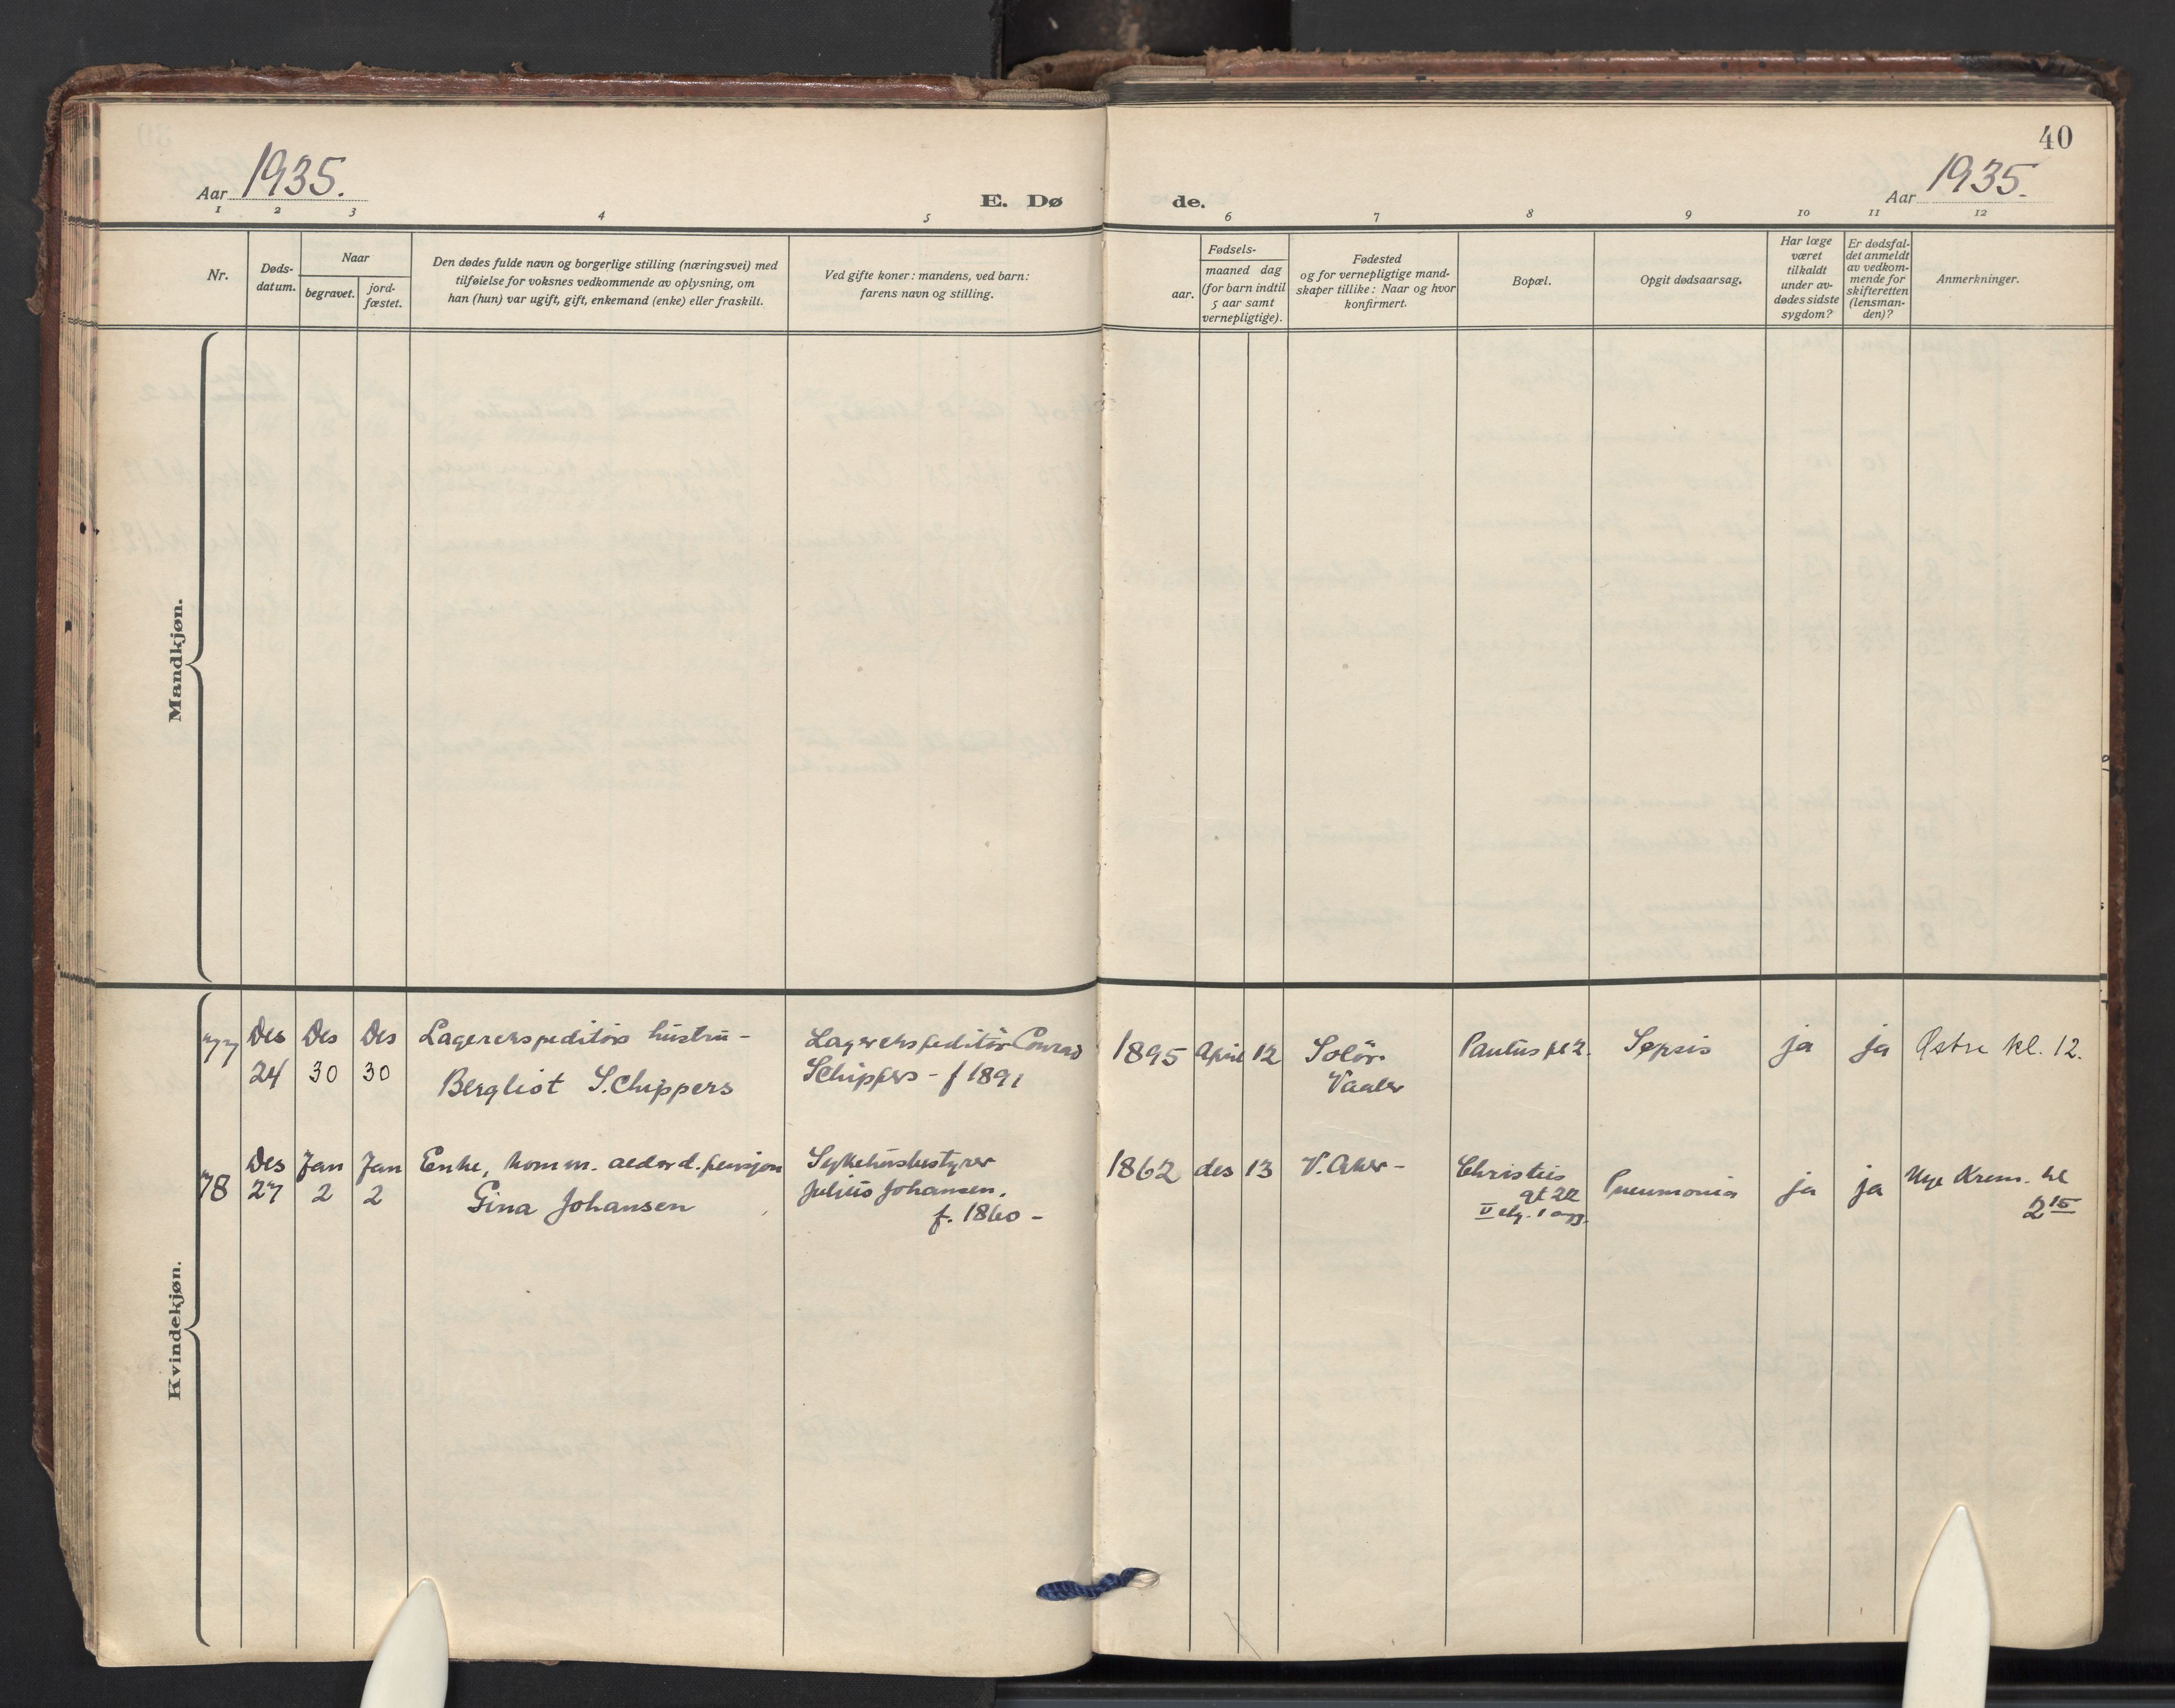 40
Aar 1935.
E. Dø
de.
Aar 1935.
1 2 3 4 5 6 7 8 9 10 11 12
Nr.
Døds-
datum.
Naar
begravet.
jord-
fæstet.
Den dødes fulde navn og borgerlige stilling (næringsvei) med
tilføielse for voksnes vedkommende av oplysning, om
han (hun) var ugift, gift, enkemand (enke) eller fraskilt.
Ved gifte koner: mandens, ved barn:
farens navn og stilling.
Fødsels-
aar.
maaned dag
(for barn indtil
5 aar samt
vernepligtige).
Fødested
og for vernepligtige mand-
skaper tillike: Naar og hvor
konfirmert.
Bopæl.
Opgit dødsaarsag.
Har læge
været
tilkaldt
under av-
dødes sidste
sygdom?
Er dødsfal-
det anmeldt
av vedkom-
mende for
skifteretten
(lensman-
den)?
Anmerkninger.
Mandkjøn.
Kvindekjøn.
77 Des Des Des Lagerekspeditørs hustru - Lagerekspeditör Conrad 1895 April 12 Solör. Paulus pl 2. Sepsis ja ja Østre kl. 12.
24 30 30 Bergliot S.Chippers SChippers - f 1891 Vaaler
Des Jan Jan Enke, komm. alderd. pensjon Sykehusbestyrer 1862 des 13 V. Aker - Christies Pneumonia ja ja Nye Krem. kl
78 27 2 2 Gina Johansen Julius Johansen. gt 22 2 15
f. 1860 - II